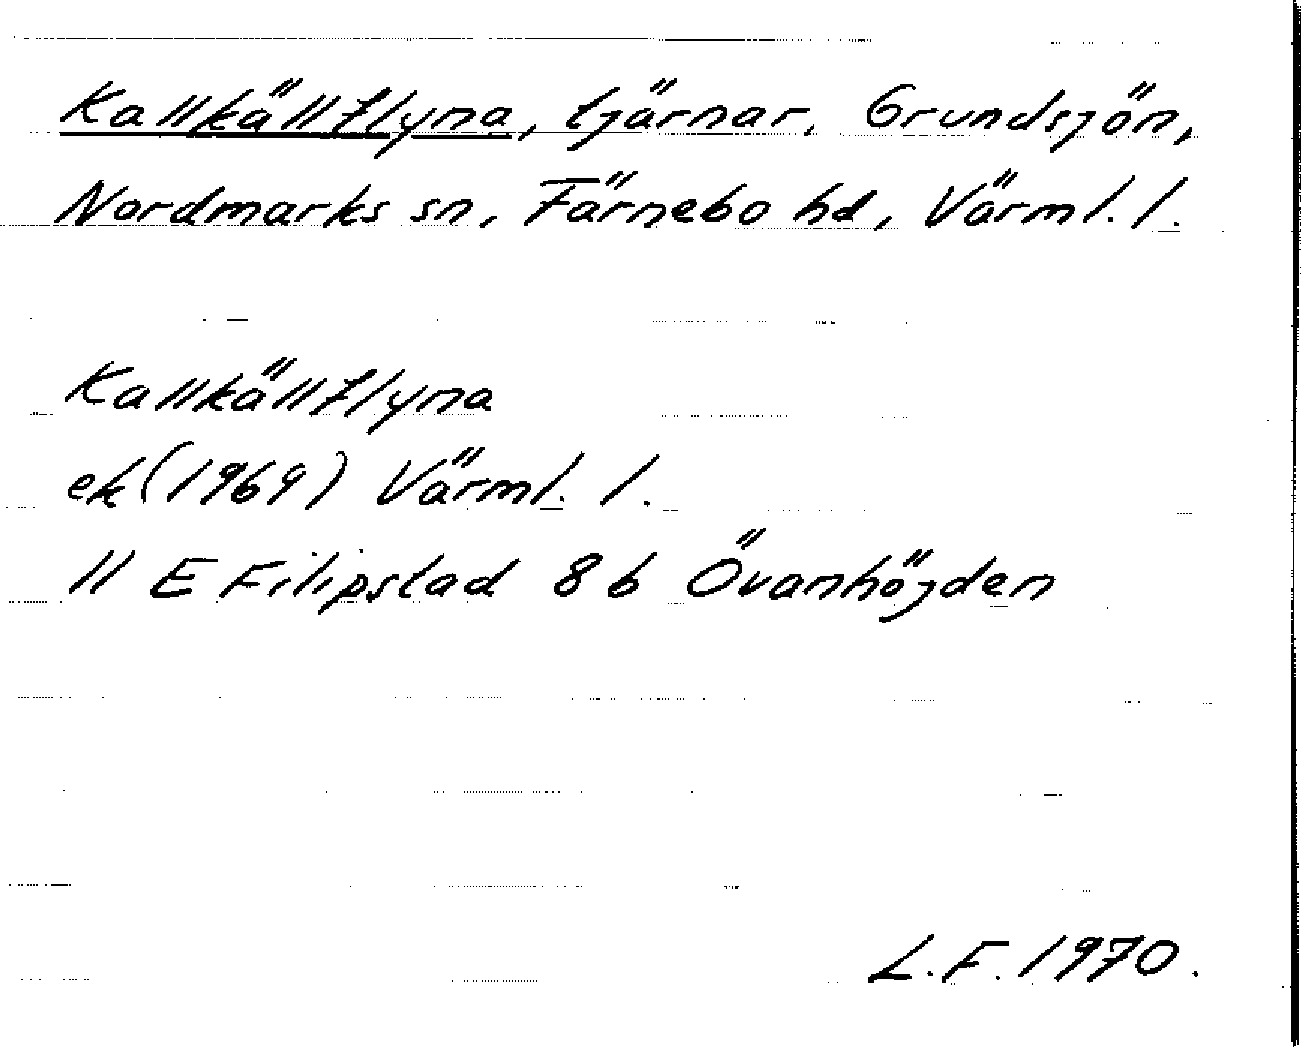 Kallkällflyna, tjärnar, Grundsjön,
Nordmarks sn, Färnebo hd, Värml. l.
Kallkällflyna
ek (1969) Värml. l.
11 E Filipstad 8 b Övanhöjden
L.F. 1970.